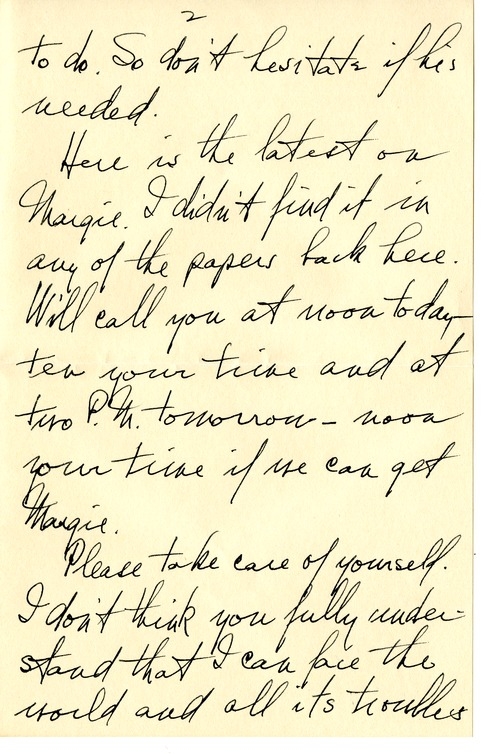 2
to do. So don't hesitate if he's
needed.
Here is the latest on
Margie. I didn't find it in
any of the papers back here.
Will call you at noon today
ten your time and at
two P.M. tomorrow - noon
your time if we can get
Margie.
Please take care of yourself.
I don't think you fully under-
stand that I can face the
world and all its troubles